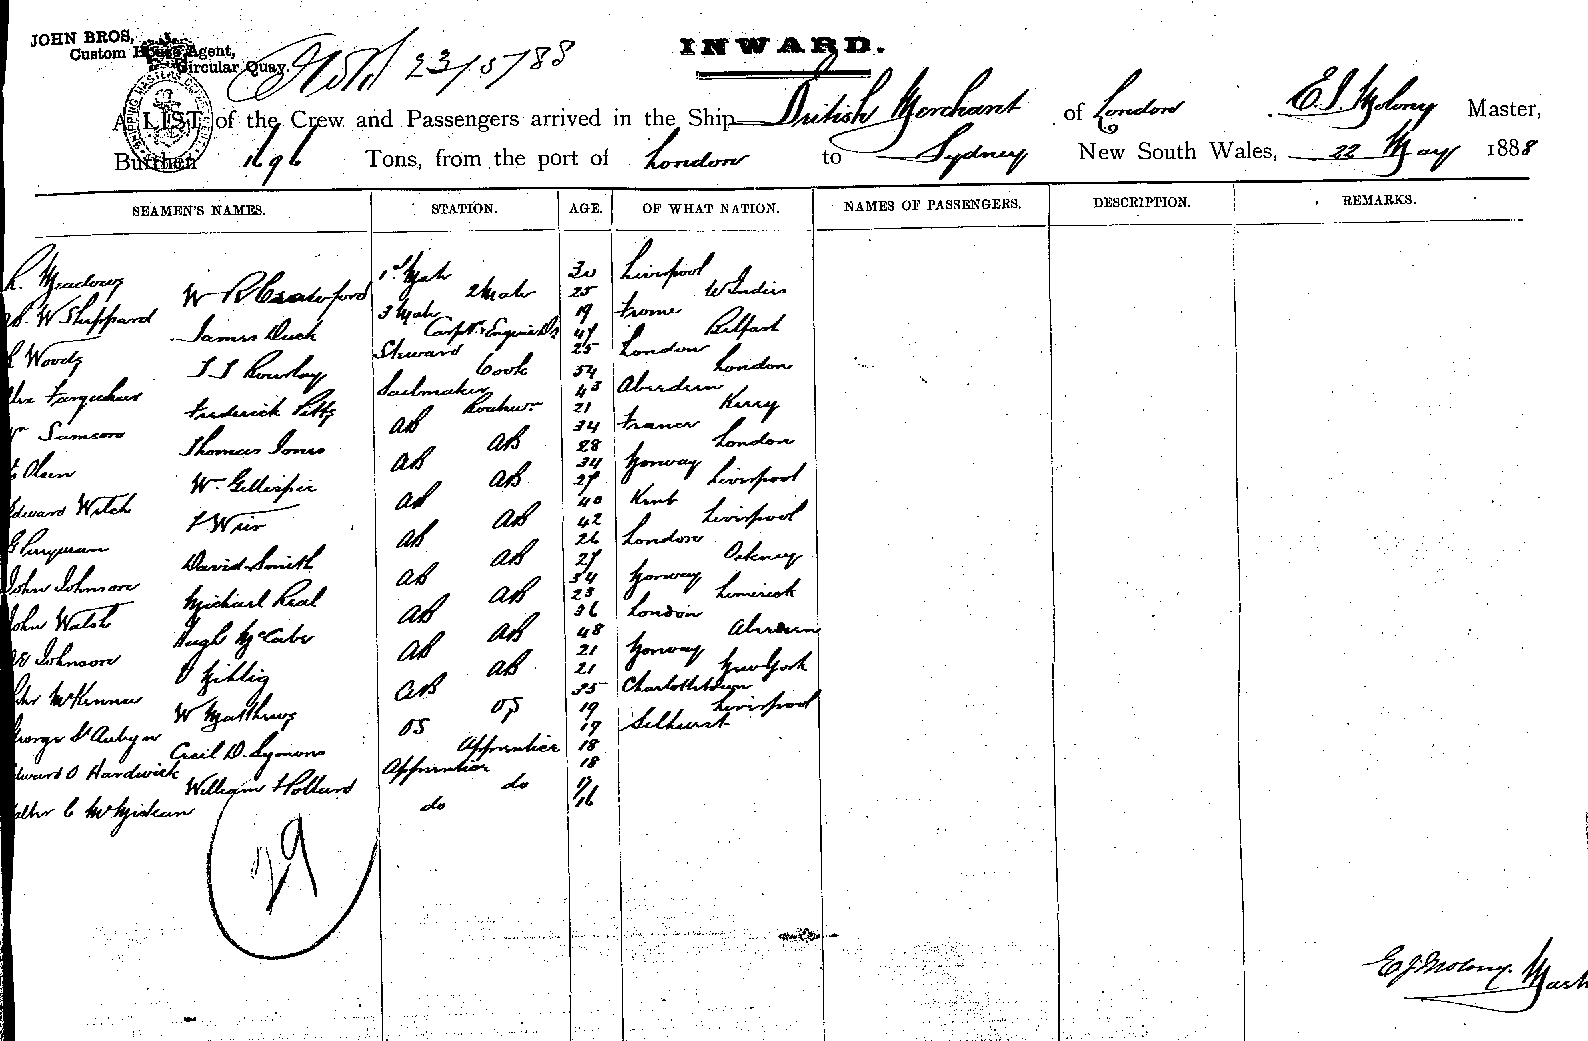 JOHN BROS,
Custom House Agent,
Circular Quay.
23/5/88
INWARD.
A LIST of the Crew and Passengers arrived in the Ship British Merchant of London E J Molony Master,
Burthen 1696 Tons, from the port of London to Sydney New South Wales, 22 May 1888
SEAMEN'S NAMES. STATION. AGE. OF WHAT NATION. NAMES OF PASSENGERS. DESCRIPTION. REMARKS.
R. Meadows 1st Mate 30 Liverpool
W R Crawford 2 Mate 25 W Indies
W Sheppard 3 Mate 19 Frome
James Duck Carptr 47 Belfast
Woods Steward 25 London
Rowley Cook 54 London
Farquhar Sailmaker 43 Aberdeen
Frederick Pitts 21 Kerry
Samson AB 34 France
Thomas Jones AB 28 London
Olsen AB 34 Norway
Wm Gillespie AB 27 Liverpool
Edward Welch AB 40 Kent
Weir AB 42 Liverpool
AB 26 London
David Smith AB 27 Orkney
John Johnson AB 34 Norway
Michael Real AB 23 Limerick
John Walsh AB 36 London
Hugh McCabe AB 48 Aberdeen
Johnson AB 21 Norway
AB 21 New York
McKenna AB 35 Charlottetown
W Matthews OS 19 Liverpool
George St Aubyn OS 19 Selhurst
Cecil D. Symons Apprentice 18
Edward O Hardwick Apprentice 18
William Holland do 17
Walter C do 16
29
E J Molony. Mast